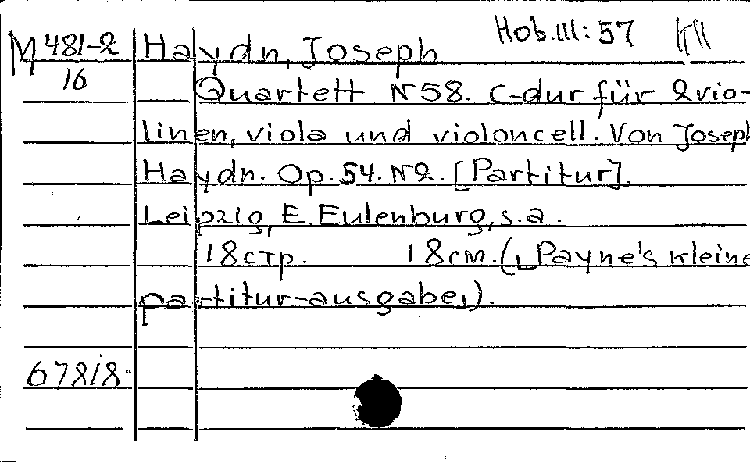 Hob.III:57 КП
M 481-2 Haydn, Joseph
16
Quartett N58. C-dur für 2vio-
linen, viola und violoncell. Von Joseph
Haydn. Op.54. N2. [Partitur].
Leipzig, E. Eulenburg, s.a.
18стр. 18см. („Payne's kleine
partitur-ausgabe„).
67818